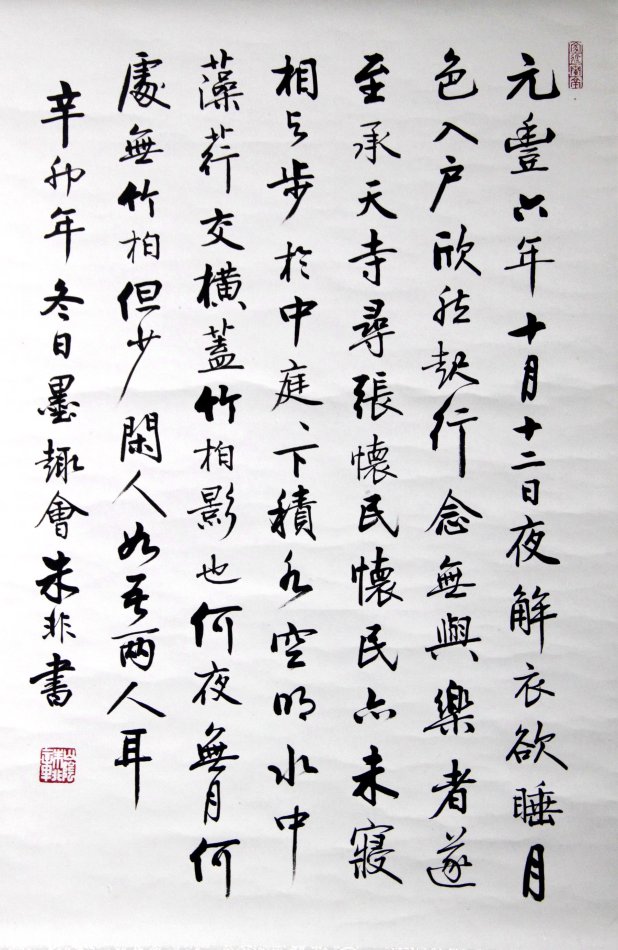 元豐六年十月十二日夜解衣欲睡月
色入户欣然起行念無與樂者遂
至承天寺尋張懷民懷民亦未寢
相与步於中庭、下積水空明水中
藻荇交横蓋竹柏影也何夜無月何
處無竹柏但少閑人如吾兩人耳
辛卯年冬日墨趣會朱非書